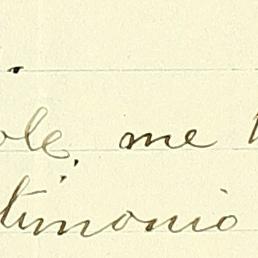 ole, me
timonio